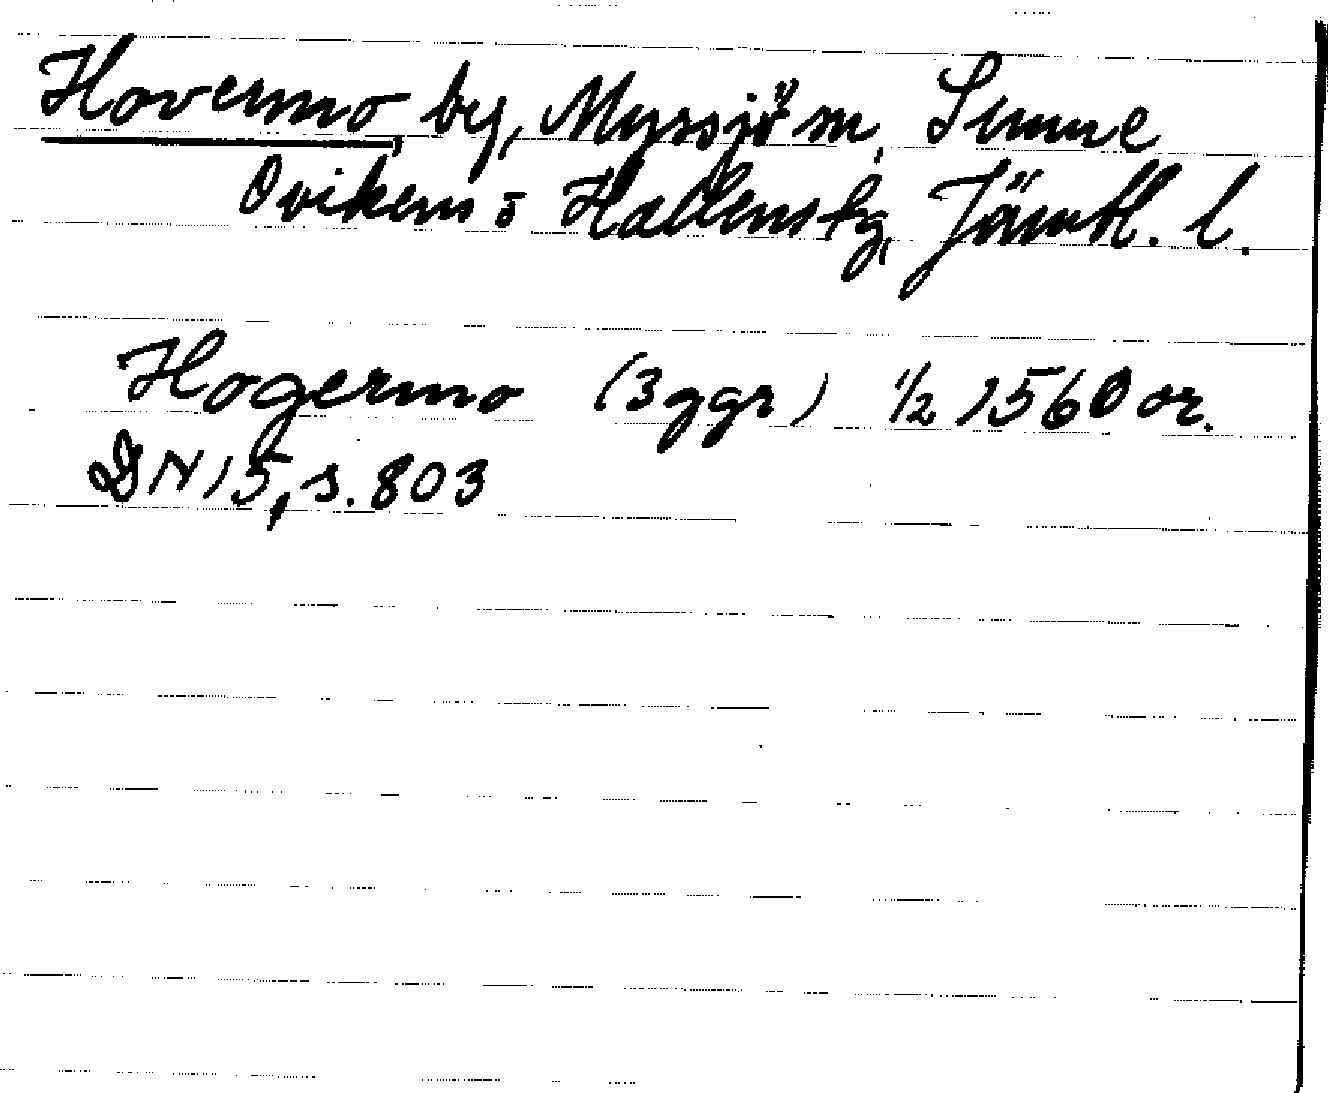 Hovermo, by, Myssjö sn, Sunne
Ovikens o Hallens tg, Jämtl. l.
Hogermo (3 ggr) 1/2 1560 or.
DN 15, s. 803